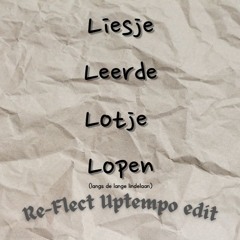 Liesje
Leerde
Lotje
Lopen
(langs de lange lindelaan)
Re-Flect Uptempo edit